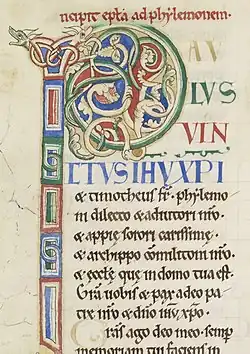 ncipit epła ad phylemonem.
PAV
LVS
VIN
CTVS IHV XPI
& timotheus fr̄. phylemo
ni dilecto & adiutori nr̄o.
& appie sorori carissime.
& archippo cōmilitoni nr̄o.
& ęcclę que in domo tua est.
Gr̄a uobis & pax a deo pa
tre nr̄o & dn̄o ihū xp̄o.
Gr̄as ago deo meo. semp̄
memoriam tui faciens in